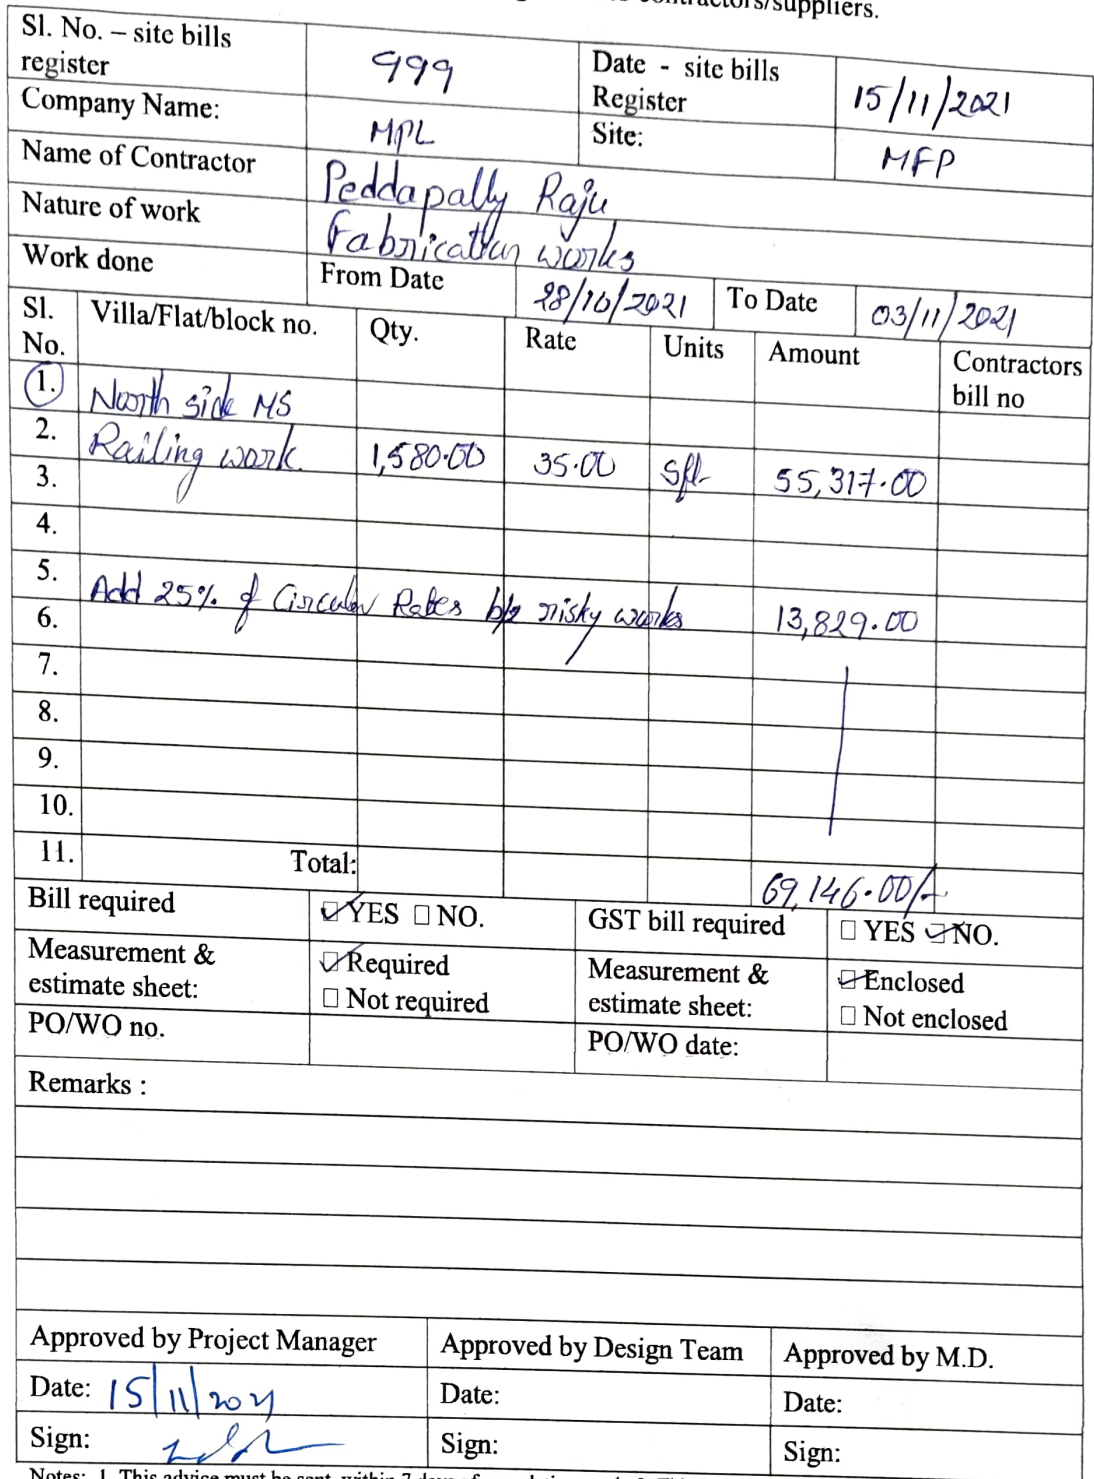 contractors/suppliers.
Sl. No. – site bills register 999 Date - site bills Register 15/11/2021
Company Name: MPL Site: MFP
Name of Contractor Peddapally Raju
Nature of work Fabrication works
Work done From Date 28/10/2021 To Date 03/11/2021
Sl. No. Villa/Flat/block no. Qty. Rate Units Amount Contractors bill no
1. North side MS
2. Railing work 1,580.00 35.00 Sft 55,317.00
3.
4.
5. Add 25% of Circular Rates b/z risky works 13,829.00
6.
7.
8.
9.
10.
11. Total: 69,146.00/-
Bill required ☑ YES ☐ NO. GST bill required ☐ YES ☑ NO.
Measurement & estimate sheet: ☑ Required ☐ Not required Measurement & estimate sheet: ☑ Enclosed ☐ Not enclosed
PO/WO no. PO/WO date:
Remarks :
Approved by Project Manager Approved by Design Team Approved by M.D.
Date: 15/11/2021 Date: Date:
Sign: Sign: Sign:
Notes: 1. This advice must be sent within 7 days of